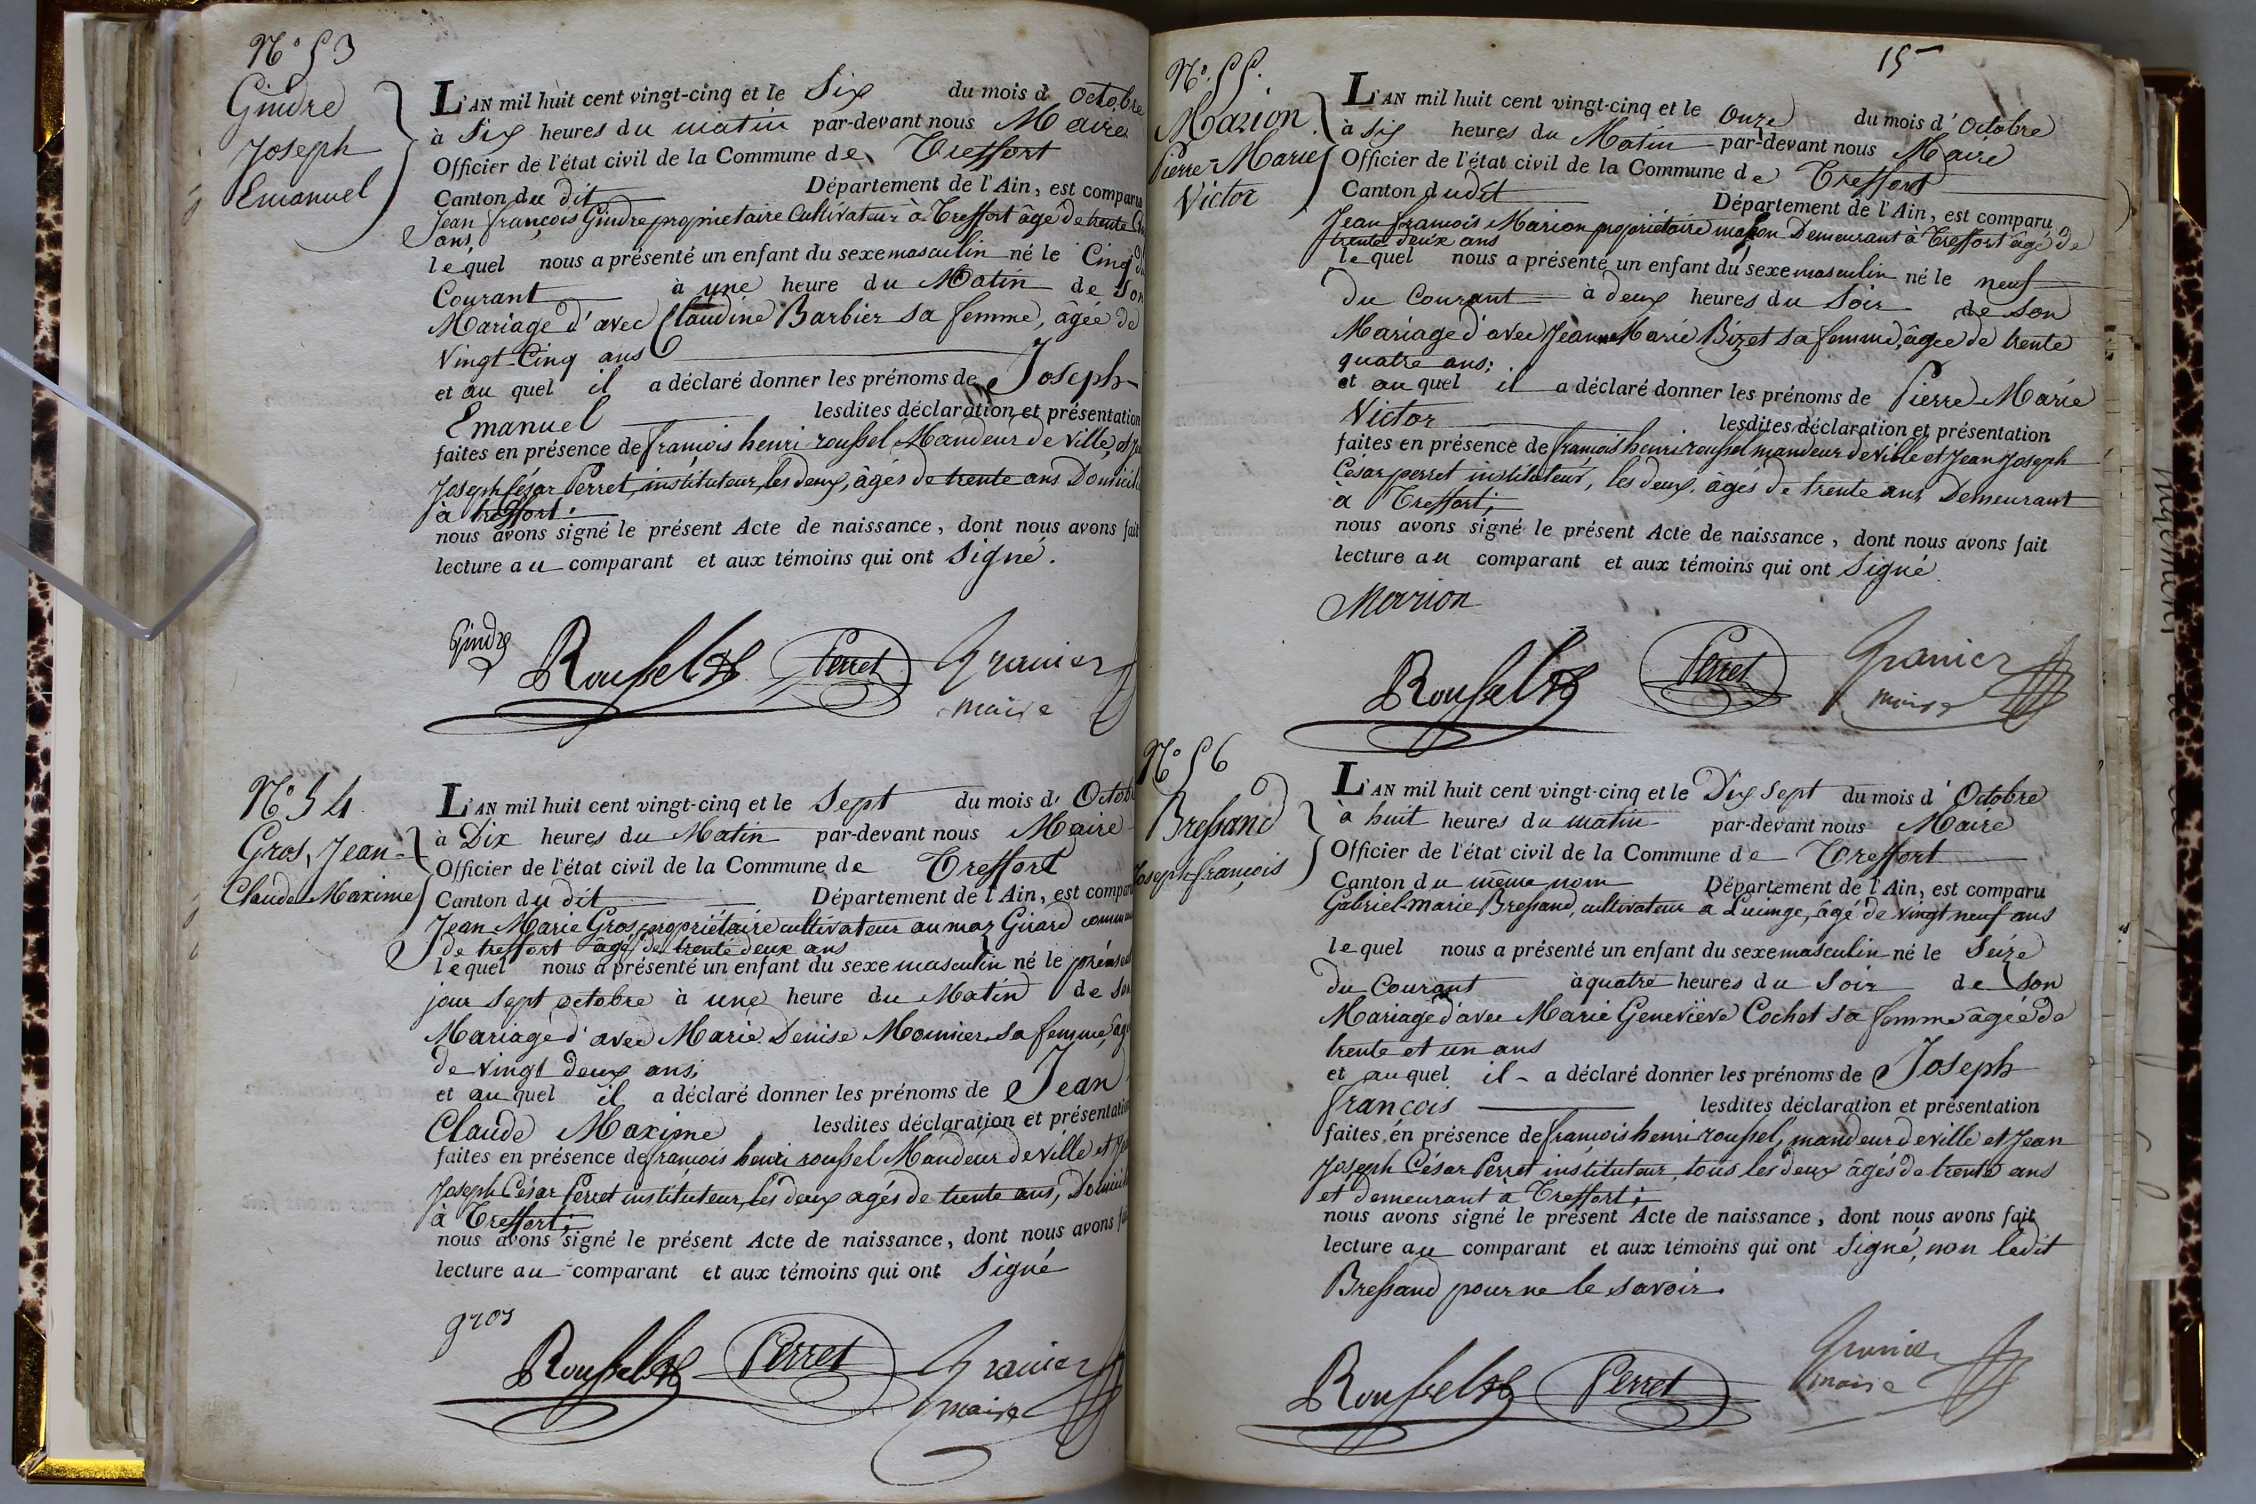 N.° 53
Gindre
Joseph
Emanuel
L'AN mil huit cent vingt-cinq et le Six du mois d Octobre
à Six heures du matin par-devant nous Maire
Officier de l'état civil de la Commune de Treffort
Canton du dit Département de l'Ain, est comparu
Jean françois Gindre proprietaire Cultivateur à Treffort âgé de trente
ans,
lequel nous a présenté un enfant du sexe masculin né le Cinq du
Courant à une heure du Matin de son
Mariage d'avec Claudine Barbier sa femme, âgée de
Vingt-Cinq ans
et au quel il a déclaré donner les prénoms de Joseph-
Emanuel lesdites déclaration et présentation
faites en présence de francois henri roussel Mandeur de Ville, et
Joseph César Perret, instituteur, les deux, âgés de trente ans
à treffort.
nous avons signé le présent Acte de naissance, dont nous avons fait
lecture au comparant et aux témoins qui ont Signé.
Gindre
Roussel Perret Granier
maire
N.° 54
Gros, Jean-
Claude Maxime
L'AN mil huit cent vingt-cinq et le Sept du mois d' Octob
à Dix heures du Matin par-devant nous Maire
Officier de l'état civil de la Commune de Treffort
Canton du dit Département de l'Ain, est compar
Jean Marie Gros, propriétaire cultivateur au maz Girard commun
de treffort âgé de trente deux ans
lequel nous a présenté un enfant du sexe masculin né le présent
jour sept octobre à une heure du Matin de son
Mariage d'avec Marie Denise Monnier sa femme, âgé
de vingt deux ans;
et au quel il a déclaré donner les prénoms de Jean
Claude Maxime lesdites déclaration et présentation
faites en présence de francois henri roussel Mandeur de Ville et
Joseph César Perret instituteur, les deux agés de trente ans,
à Treffort;
nous avons signé le présent Acte de naissance, dont nous avons
lecture au comparant et aux témoins qui ont Signé
gros
Roussel Perret Granier
maire
15
N.° 55.
Marion
Pierre-Marie
Victor
L'AN mil huit cent vingt-cinq et le Onze du mois d' Octobre
à six heures du Matin par-devant nous Maire
Officier de l'état civil de la Commune de Treffort
Canton dudit Département de l'Ain, est comparu
Jean francois Marion propriétaire maçon Demeurant à Treffort âgé de
trente deux ans
lequel nous a présenté un enfant du sexe masculin né le neuf
du Courant à deux heures du Soir de son
Mariage d'avec Jeanne Marie Bizet sa femme, âgée de trente
quatre ans;
et au quel il a déclaré donner les prénoms de Pierre-Marie
Victor lesdites déclaration et présentation
faites en présence de francois henri roussel mandeur de Ville et Jean Joseph
César perret instituteur, les deux âgés de trente ans Demeurant
à Treffort;
nous avons signé le présent Acte de naissance, dont nous avons fait
lecture au comparant et aux témoins qui ont Signé
Marion
Roussel Perret Granier
maire
N.° 56
Bressand
Joseph françois
L'AN mil huit cent vingt-cinq et le Dix sept du mois d' Octobre
à huit heures du matin par-devant nous Maire
Officier de l'état civil de la Commune de Treffort
Canton du même nom Département de l'Ain, est comparu
Gabriel-Marie Bressand, cultivateur à Lucinge, âgé de vingt neuf ans
lequel nous a présenté un enfant du sexe masculin né le Seize
du Courant à quatre heures du Soir de son
Mariage d'avec Marie Geneviève Cochet sa femme âgée de
trente et un ans
et au quel il a déclaré donner les prénoms de Joseph
françois lesdites déclaration et présentation
faites en présence de francois henri roussel, mandeur de ville et Jean
Joseph César Perret instituteur, tous les deux âgés de trente ans
et demeurant à Treffort;
nous avons signé le présent Acte de naissance, dont nous avons fait
lecture au comparant et aux témoins qui ont Signé, non ledit
Bressand pour ne le savoir.
Roussel Perret Granier
maire